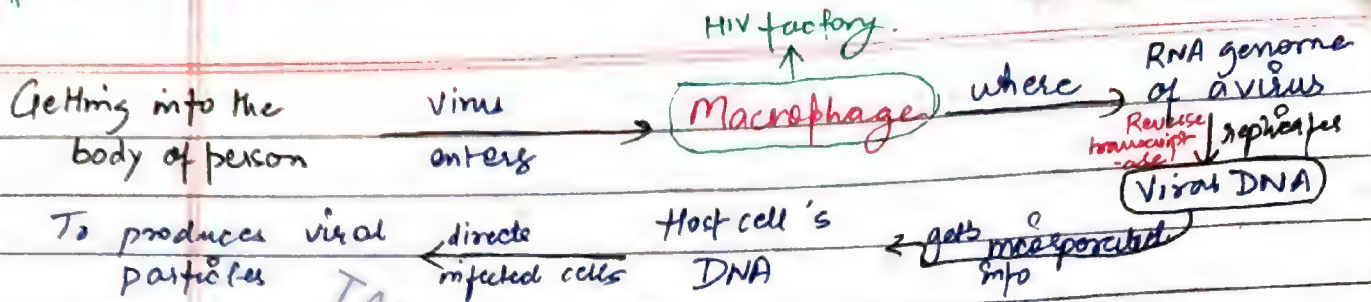 HIV factory.
Getting into the body of person
virus enters
Macrophage
where
RNA genome of a virus
Reverse transcript-ase
replicates
Viral DNA
gets incorporated into
Host cell's DNA
directs infected cells
To produces viral particles